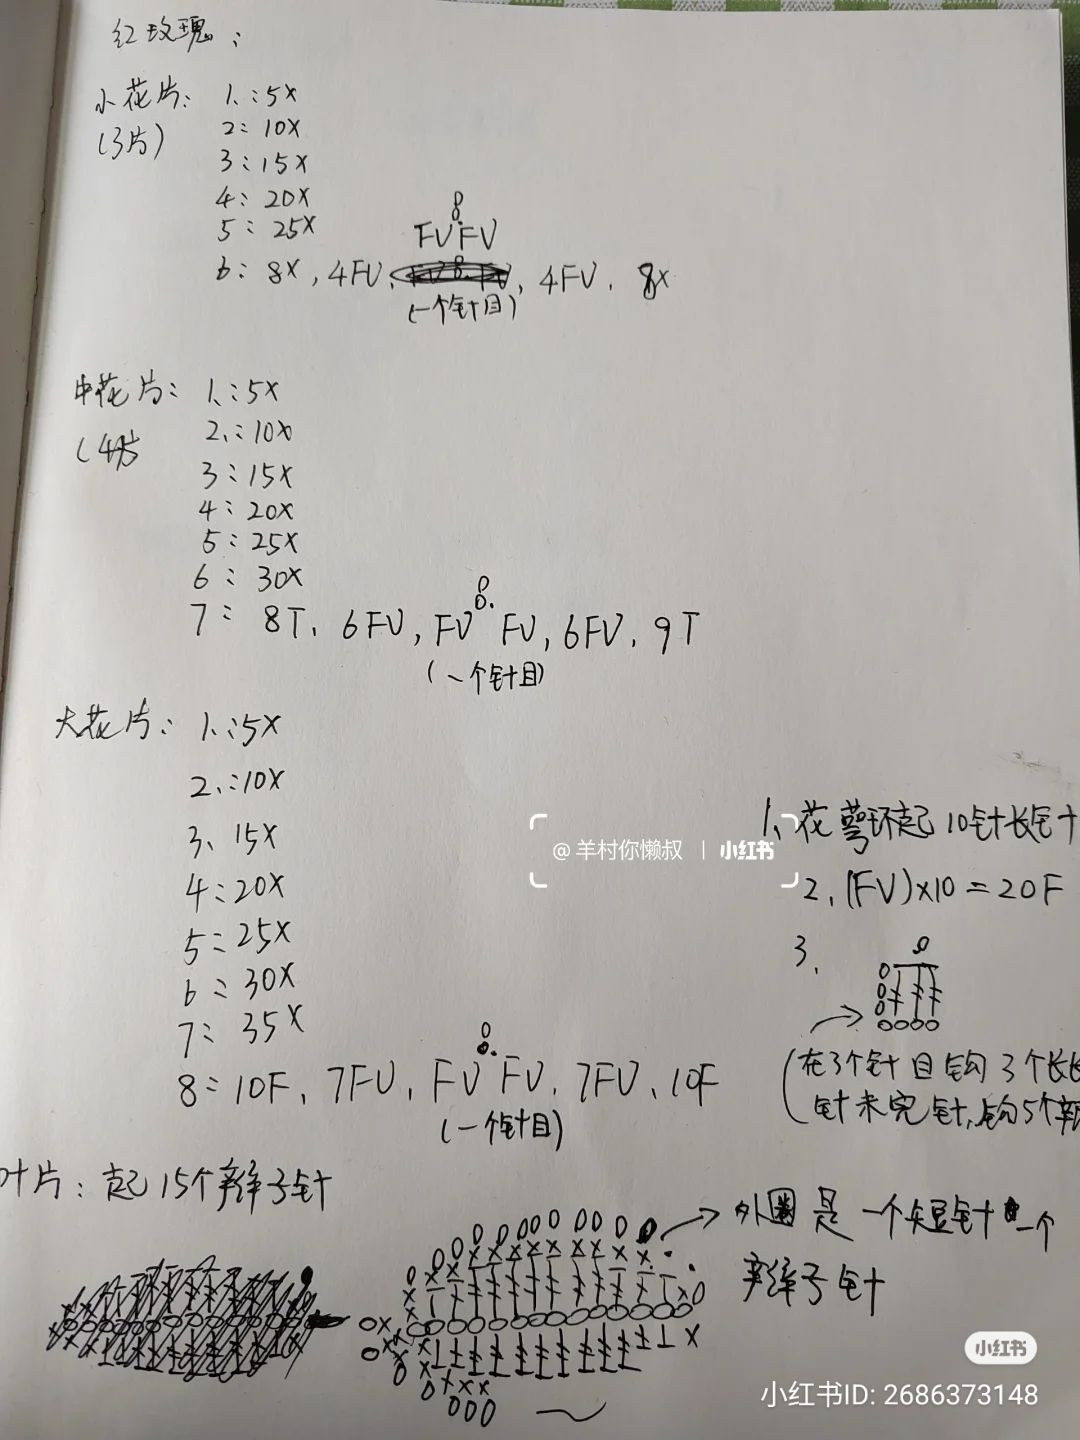 红玫瑰:
小花片: 1、:5X
(3片) 2: 10X
3: 15X
4: 20X
5: 25X
FV FV
6: 8X, 4FV, , 4FV, 8X
(一个针目)
中花片: 1、:5X
(4片) 2、:10X
3: 15X
4: 20X
5: 25X
6: 30X
7: 8T, 6FV, FV FV, 6FV, 9T
(一个针目)
大花片: 1、:5X
2、:10X
3、15X
4: 20X
5: 25X
6: 30X
7: 35X
8: 10F, 7FV, FV FV, 7FV, 10F
(一个针目)
1、花萼环起10针长针
2、(FV)×10=20F
3、
(在3个针目钩3个长长
针未完针,钩5个辫
@羊村你懒叔 | 小红书
叶片: 起15个辫子针
外圈是一个短针一个
辫子针
小红书
小红书ID: 2686373148